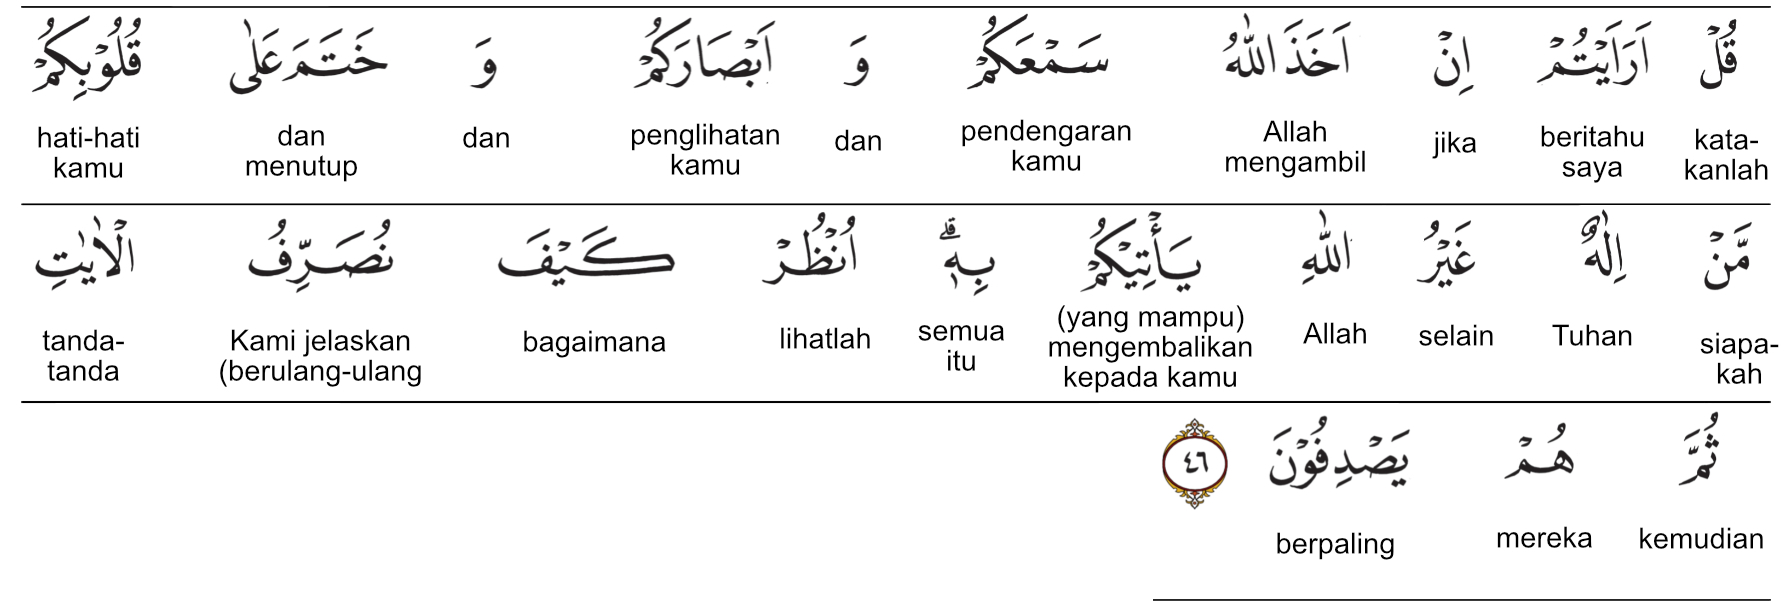 قُلْ اَرَاَيْتُمْ اِنْ اَخَذَ اللّٰهُ سَمْعَكُمْ وَ اَبْصَارَكُمْ وَ خَتَمَ عَلٰى قُلُوْبِكُمْ
kata- beritahu jika Allah pendengaran dan penglihatan dan dan hati-hati
kanlah saya mengambil kamu kamu menutup kamu
مَّنْ اِلٰهٌ غَيْرُ اللّٰهِ يَأْتِيْكُمْ بِهٖۗ اُنْظُرْ كَيْفَ نُصَرِّفُ الْاٰيٰتِ
siapa- Tuhan selain Allah (yang mampu) semua lihatlah bagaimana Kami jelaskan tanda-
kah mengembalikan itu (berulang-ulang tanda
kepada kamu
ثُمَّ هُمْ يَصْدِفُوْنَ ٤٦
kemudian mereka berpaling